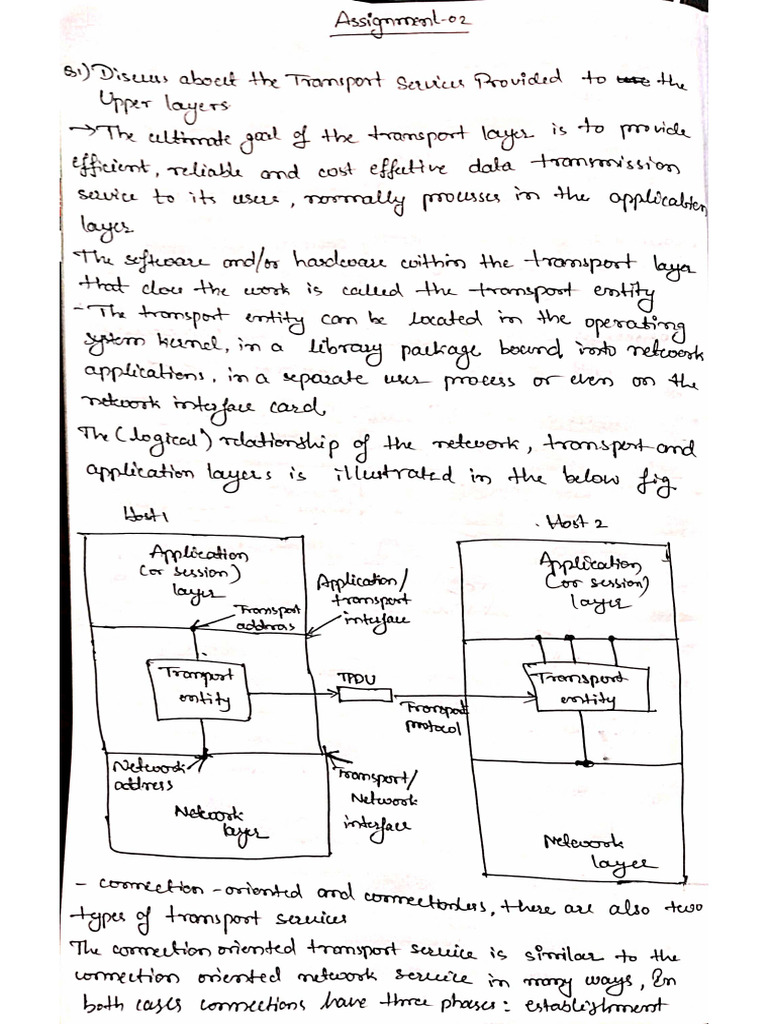 Assignment-02
Q1) Discuss about the Transport Services Provided to the
Upper layers
→ The ultimate goal of the transport layer is to provide
efficient, reliable and cost effective data transmission
service to its users, normally processes in the application
layer
The software and/or hardware within the transport layer
that does the work is called the transport entity
- The transport entity can be located in the operating
system kernel, in a library package bound into network
applications, in a separate user process or even on the
network interface card
The (logical) relationship of the network, transport and
application layers is illustrated in the below fig
Host 1
Host 2
Application
(or session)
layer
Transport
address
Application/
transport
interface
Application
(or session)
layer
Tranport
entity
TPDU
Transport
protocol
Transport
entity
Network
address
Transport/
Network
interface
Network
layer
Network
layer
- connection-oriented and connectionless, there are also two
types of transport services
The connection oriented transport service is similar to the
connection oriented network service in many ways, In
both cases connections have three phases: establishment